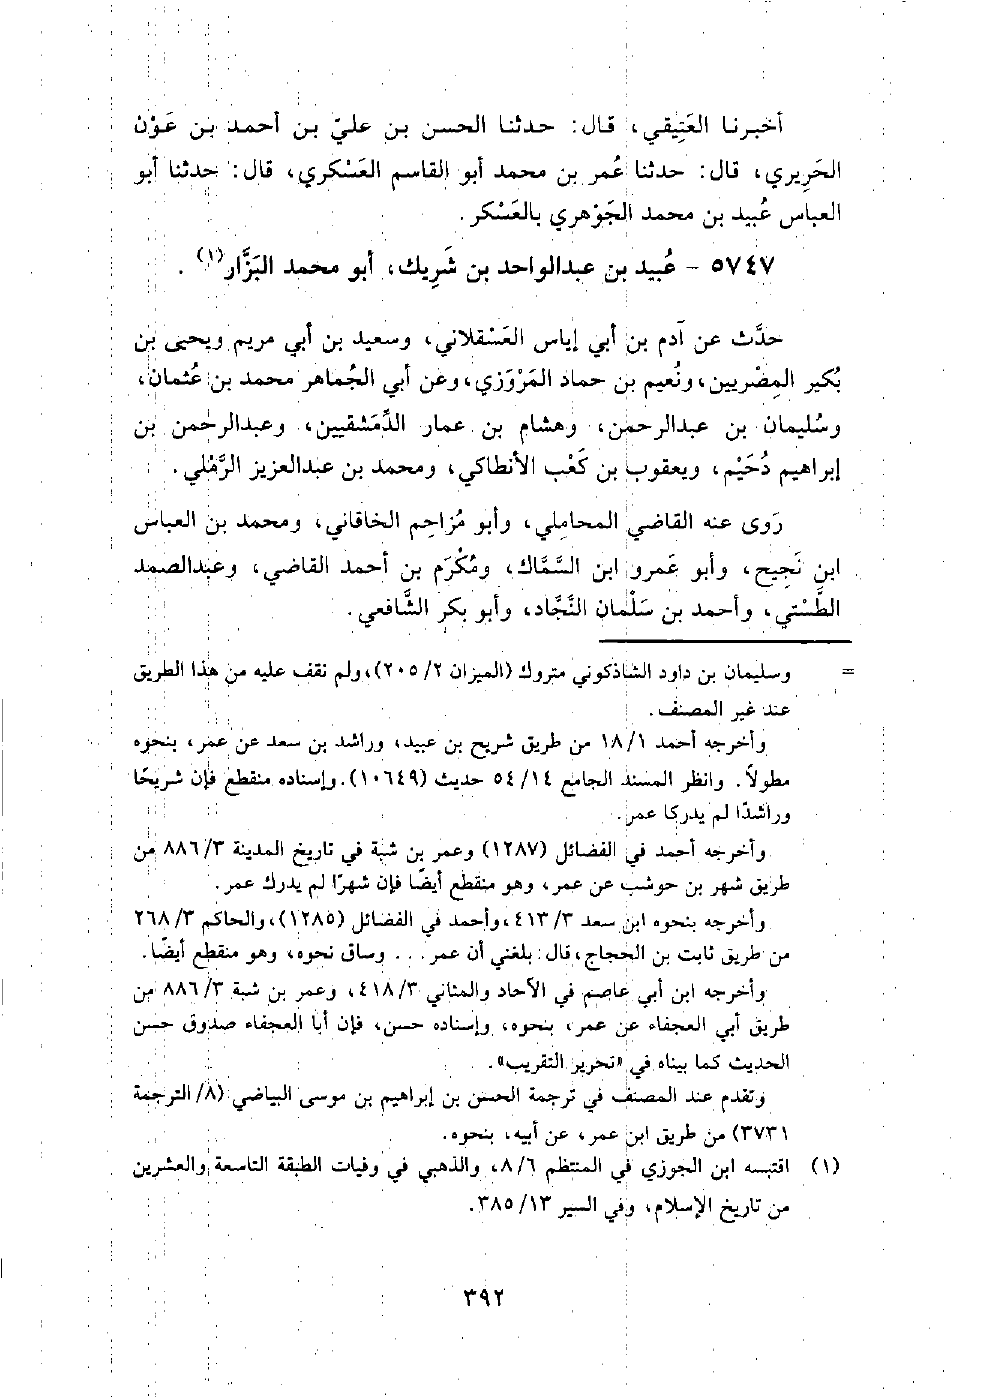 أخبرنا العَتِيقي، قال: حدثنا الحسن بن عليّ بن أحمد بن عَوْن
الحَرِيري، قال: حدثنا عُمر بن محمد أبو القاسم العَسْكري، قال: حدثنا أبو
العباس عُبيد بن محمد الجَوْهري بالعَسْكر.
٥٧٤٧ - عُبيد بن عبدالواحد بن شَرِيك، أبو محمد البَزَّار(١).
حدَّث عن آدم بن أبي إياس العَسْقلاني، وسعيد بن أبي مريم ويحيى بن
بُكير المِصْريين، ونُعيم بن حماد المَرْوَزي، وعن أبي الجُماهر محمد بن عُثمان،
وسُليمان بن عبدالرحمن، وهشام بن عمار الدِّمَشقيين، وعبدالرحمن بن
إبراهيم دُحَيْم، ويعقوب بن كَعْب الأنطاكي، ومحمد بن عبدالعزيز الرَّمْلي.
رَوى عنه القاضي المحاملي، وأبو مُزاحِم الخاقاني، ومحمد بن العباس
ابن نَجِيح، وأبو عَمرو ابن السَّمَّاك، ومُكْرَم بن أحمد القاضي، وعبدالصمد
الطَّسْتي، وأحمد بن سَلْمان النَّجَّاد، وأبو بكر الشَّافعي.
= وسليمان بن داود الشاذكوني متروك (الميزان ٢/ ٢٠٥)، ولم نقف عليه من هذا الطريق
عند غير المصنف.
وأخرجه أحمد ١/ ١٨ من طريق شريح بن عبيد، وراشد بن سعد عن عمر، بنحوه
مطولاً. وانظر المسند الجامع ١٤/ ٥٤ حديث (١٠٦٤٩). وإسناده منقطع فإن شريحًا
وراشدًا لم يدركا عمر.
وأخرجه أحمد في الفضائل (١٢٨٧) وعمر بن شبة في تاريخ المدينة ٣/ ٨٨٦ من
طريق شهر بن حوشب عن عمر، وهو منقطع أيضًا فإن شهرًا لم يدرك عمر.
وأخرجه بنحوه ابن سعد ٣/ ٤١٣، وأحمد في الفضائل (١٢٨٥)، والحاكم ٣/ ٢٦٨
من طريق ثابت بن الحجاج، قال: بلغني أن عمر... وساق نحوه، وهو منقطع أيضًا.
وأخرجه ابن أبي عاصم في الآحاد والمثاني ٣/ ٤١٨، وعمر بن شبة ٣/ ٨٨٦ من
طريق أبي العجفاء عن عمر، بنحوه، وإسناده حسن، فإن أبا العجفاء صدوق حسن
الحديث كما بيناه في «تحرير التقريب».
وتقدم عند المصنف في ترجمة الحسن بن إبراهيم بن موسى البياضي (٨/ الترجمة
٣٧٣١) من طريق ابن عمر، عن أبيه، بنحوه.
(١) اقتبسه ابن الجوزي في المنتظم ٦/ ٨، والذهبي في وفيات الطبقة التاسعة والعشرين
من تاريخ الإسلام، وفي السير ١٣/ ٣٨٥.
٣٩٢